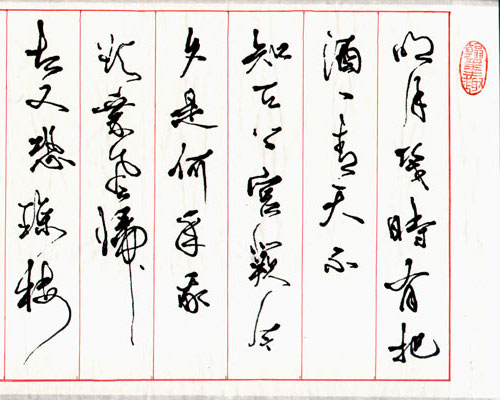 明月幾時有把
酒問青天不
知天上宮闕今
夕是何年我
欲乘風歸
去又恐瓊樓